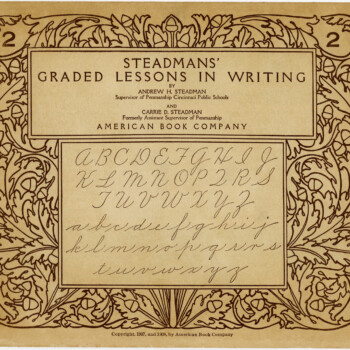 2 2
STEADMANS'
GRADED LESSONS IN WRITING
BY
ANDREW H. STEADMAN
Supervisor of Penmanship Cincinnati Public Schools
AND
CARRIE D. STEADMAN
Formerly Assistant Supervisor of Penmanship
AMERICAN BOOK COMPANY
A B C D E F G H I J
K L M N O P Q R S
T U V W X Y Z
a b c d e f g h i j
k l m n o p q r s
t u v w x y z
Copyright, 1907, and 1909, by American Book Company